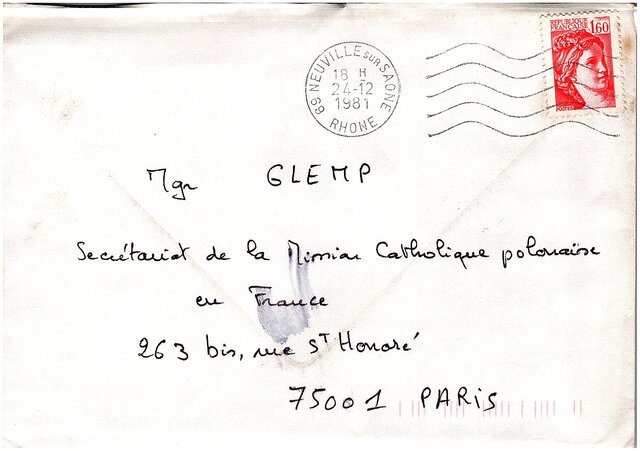 RÉPUBLIQUE
FRANÇAISE 1,60
POSTES
69 NEUVILLE SUR SAONE
18 H
24-12
1981
RHONE
Mgr GLEMP
Secrétariat de la Mission Catholique polonaise
en France
263 bis, rue ST Honoré
75001 PARIS